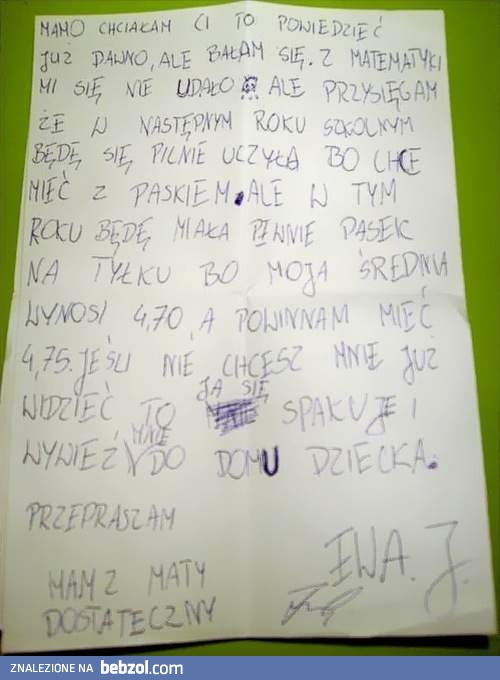 MAMO CHCIAŁAM CI TO POWIEDZIEĆ
JUŻ DAWNO, ALE BAŁAM SIĘ. Z MATEMATYKI
MI SIĘ NIE UDAŁO ALE PRZYSIĘGAM
ŻE W NASTĘPNYM ROKU SZKOLNYM
BĘDĘ SIĘ PILNIE UCZYŁA BO CHCE
MIEĆ Z PASKIEM. ALE W TYM
ROKU BĘDĘ MIAŁA PEWNIE PASEK
NA TYŁKU BO MOJA ŚREDNIA
WYNOSI 4,70, A POWINNAM MIEĆ
4,75. JEŚLI NIE CHCESZ MNIE JUŻ
WIDZIEĆ TO JA SIĘ SPAKUJE I
WYWIEŹ MNIE DO DOMU DZIECKA.
PRZEPRASZAM
EWA. J.
MAM Z MATY
DOSTATECZNY
ZNALEZIONE NA bebzol.com